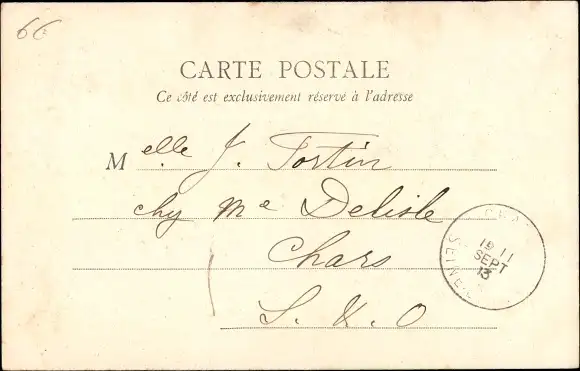 66
CARTE POSTALE
Ce côté est exclusivement réservé à l'adresse
Melle J. Tortin
chy Me Delisle
Chars
S. & O
CHA
19 11
SEPT
13
SEINE